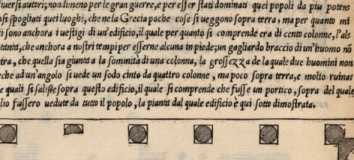 huersi autori; non dico per le gran guerre, e per esser stati dominati quei popoli da piu potenti
si spogliati quei luoghi, che ne la Grecia poche cose si veggono sopra terra, ma per quanto mi
si sono anchora i uestigi di un'edificio, il quale per quanto si comprende era di cento colonne, l'al
che anchora a nostri tempi per esserne alcuna in piede; un gagliardo braccio di un'huomo nō
tra, che quella sia giunta a la sommita di una colonna, la grossezza de la quale due huomini non
che ad un'angolo si uede un sodo cinto da quattro colonne, ma poco sopra terra, e molto ruinat
e quali si salisse sopra questo edificio, il quale si comprende che fusse un portico, sopra del quale
lio fussero uedute da tutto il popolo, la pianta dal quale edificio è qui sotto dimostrata.